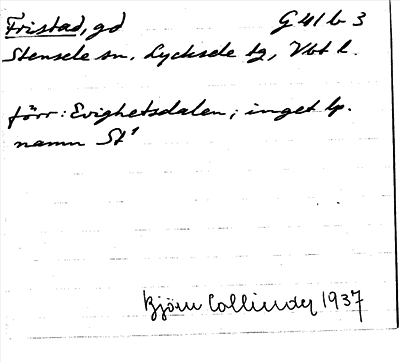 Fristad, gd G 41 b 3
Stensele sn, Lycksele tg, Vbt l.
förr: Evighetsdalen; inget lp.
namn St¹
Björn Collinder 1937